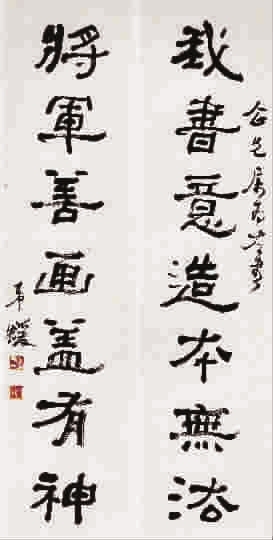 我書意造本無法
將軍善画盖有神